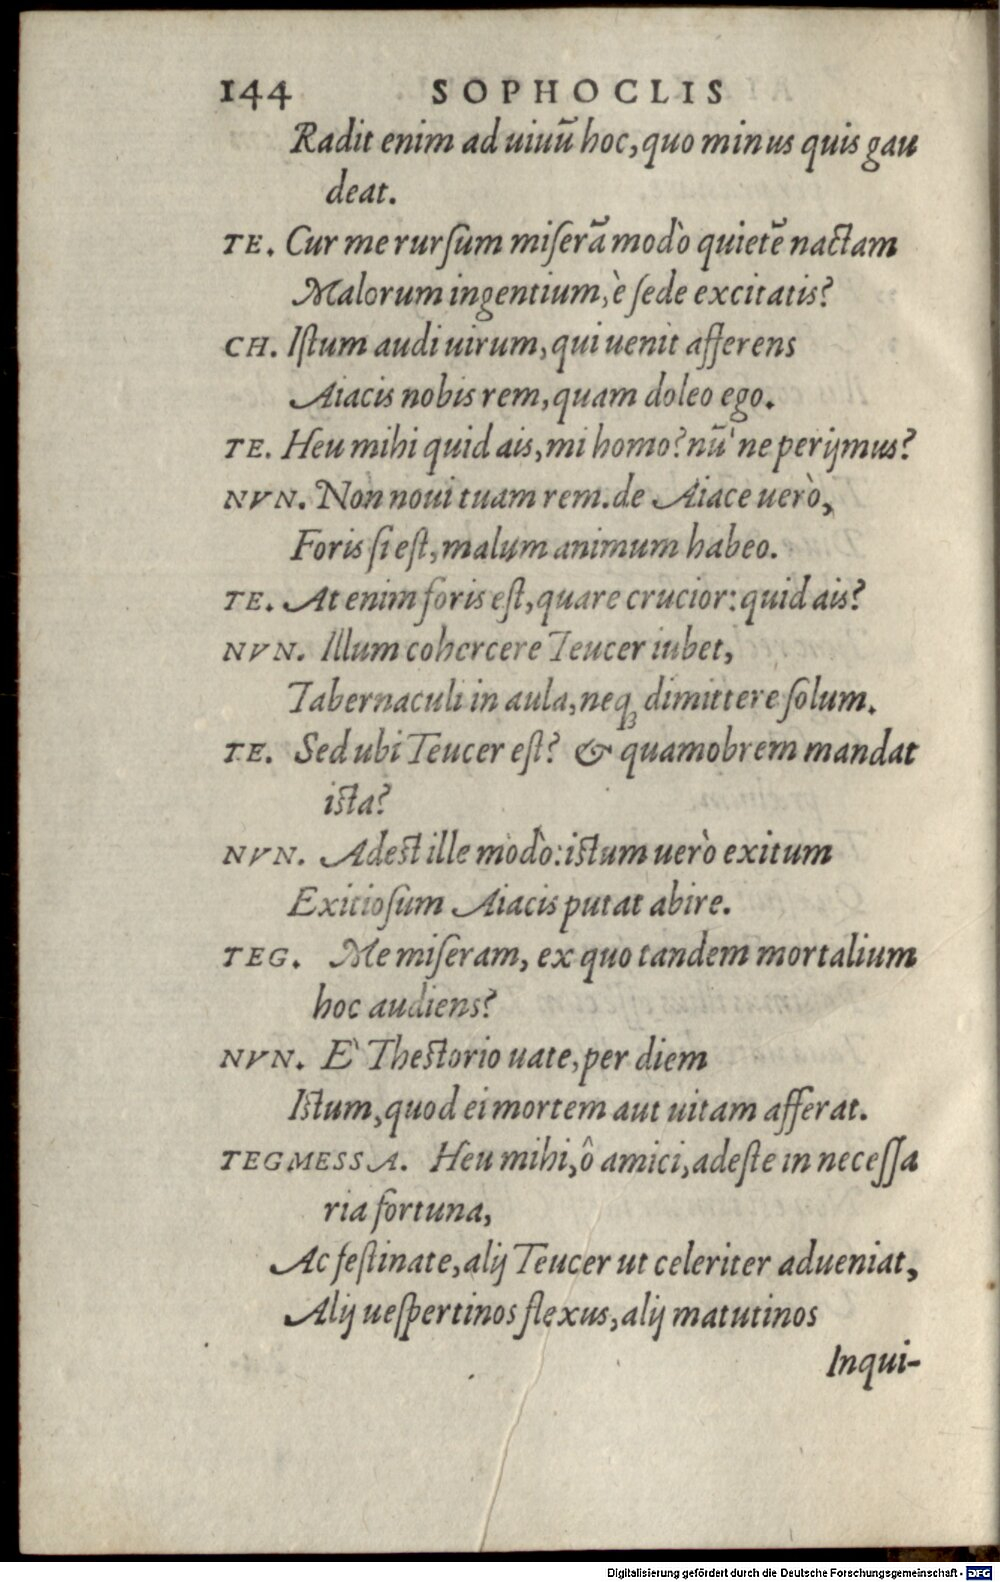 144 SOPHOCLIS
Radit enim ad uiuū hoc, quo minus quis gau
deat.
TE. Cur me rursum miserā modò quietē nactam
Malorum ingentium, è sede excitatis?
CH. Istum audi uirum, qui uenit afferens
Aiacis nobis rem, quam doleo ego.
TE. Heu mihi quid ais, mi homo? nū ne perijmus?
NVN. Non noui tuam rem. de Aiace uerò,
Foris si est, malum animum habeo.
TE. At enim foris est, quare crucior: quid ais?
NVN. Illum cohercere Teucer iubet,
Tabernaculi in aula, neq; dimittere solum.
TE. Sed ubi Teucer est? & quamobrem mandat
ista?
NVN. Adest ille modò: istum uerò exitum
Exitiosum Aiacis putat abire.
TEG. Me miseram, ex quo tandem mortalium
hoc audiens?
NVN. E` Thestorio uate, per diem
Istum, quod ei mortem aut uitam afferat.
TEGMESSA. Heu mihi, ô amici, adeste in necessa
ria fortuna,
Ac festinate, alij Teucer ut celeriter adueniat,
Alij uespertinos flexus, alij matutinos
Inqui-
Digitalisierung gefördert durch die Deutsche Forschungsgemeinschaft - DFG